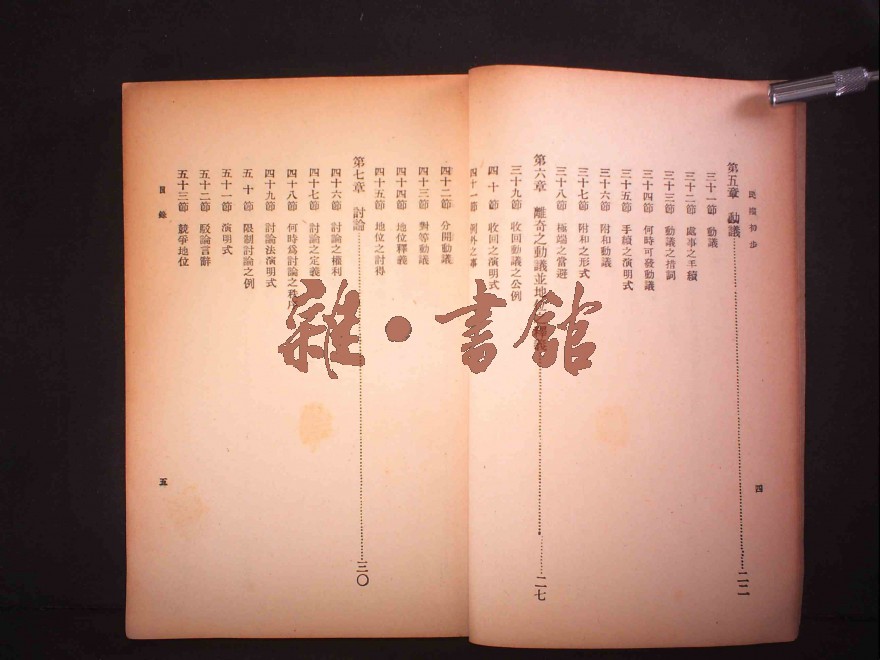 民權初步
第五章　動議……二二
三十一節　動議
三十二節　處事之手續
三十三節　動議之措詞
三十四節　何時可發動議
三十五節　手續之演明式
三十六節　附和動議
三十七節　附和之形式
三十八節　極端之當避
第六章　離奇之動議並地……二七
三十九節　收回動議之公例
四十節　收回之演明式
四十一節　例外之事
四
四十二節　分開動議
四十三節　對等動議
四十四節　地位釋義
四十五節　地位之討得
第七章　討論……三〇
四十六節　討論之權利
四十七節　討論之定義
四十八節　何時爲討論之秩序
四十九節　討論法演明式
五十節　限制討論之例
五十一節　演明式
五十二節　駁論言辭
五十三節　競爭地位
目錄
五
雜・書館